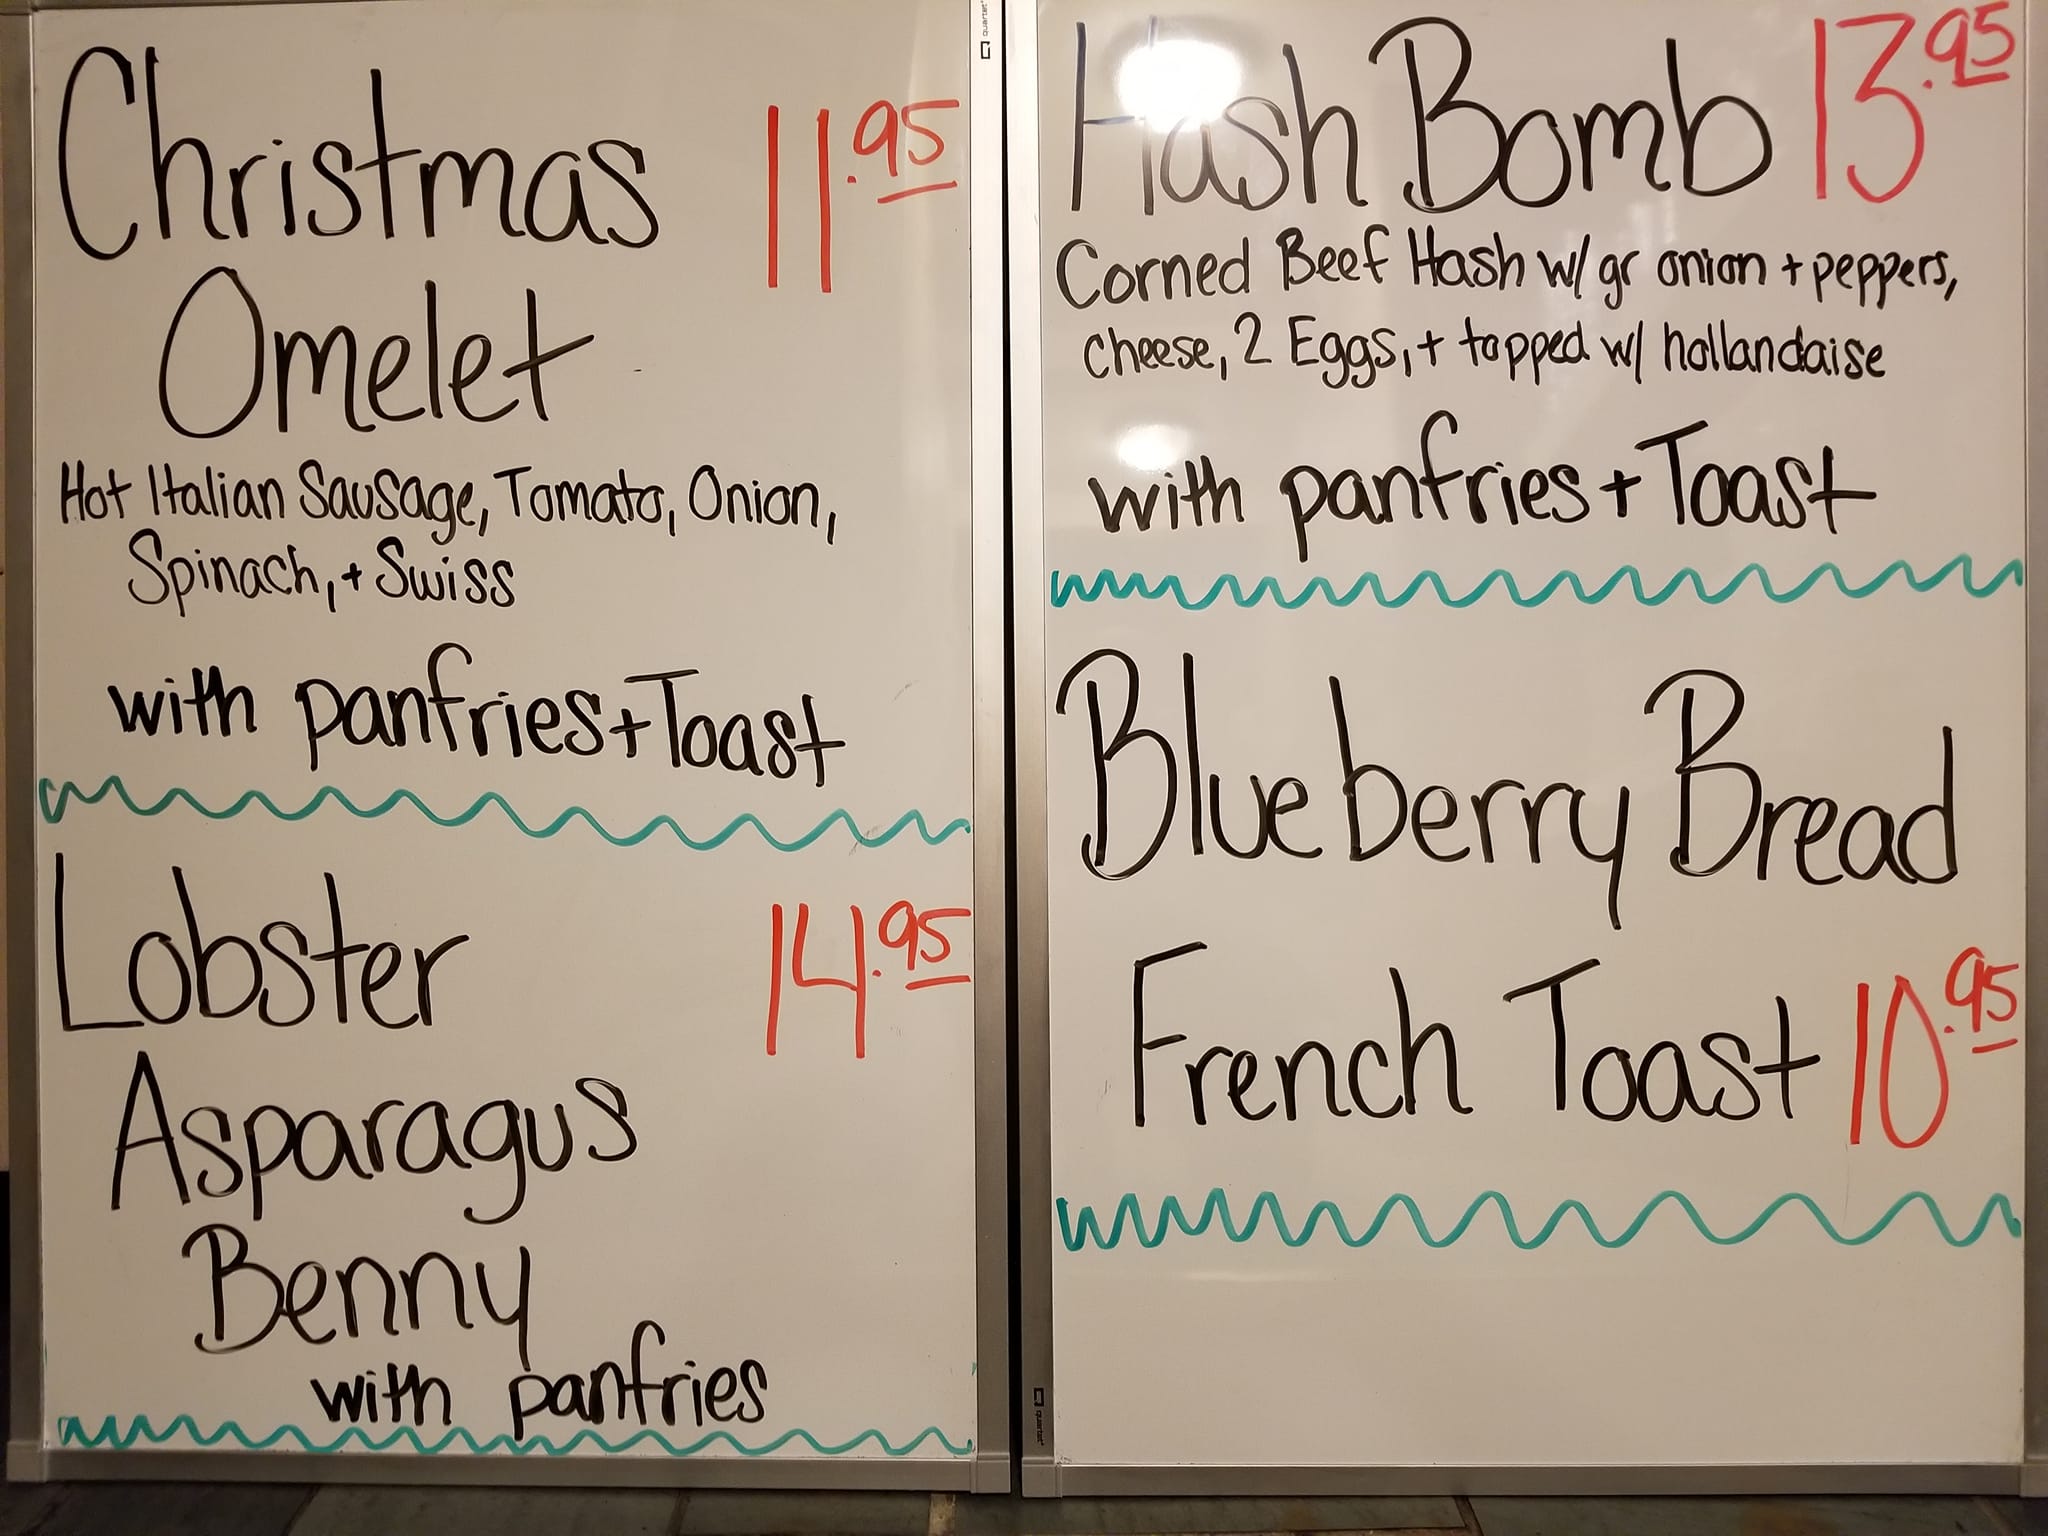 Christmas 11.95
Omelet
Hot Italian Sausage, Tomato, Onion,
Spinach, + Swiss
with panfries + Toast
Lobster 14.95
Asparagus
Benny
with panfries
quartet
Hash Bomb 13.95
Corned Beef Hash w/ gr onion + peppers,
cheese, 2 Eggs, + topped w/ hollandaise
with panfries + Toast
Blueberry Bread
French Toast 10.95
quartet